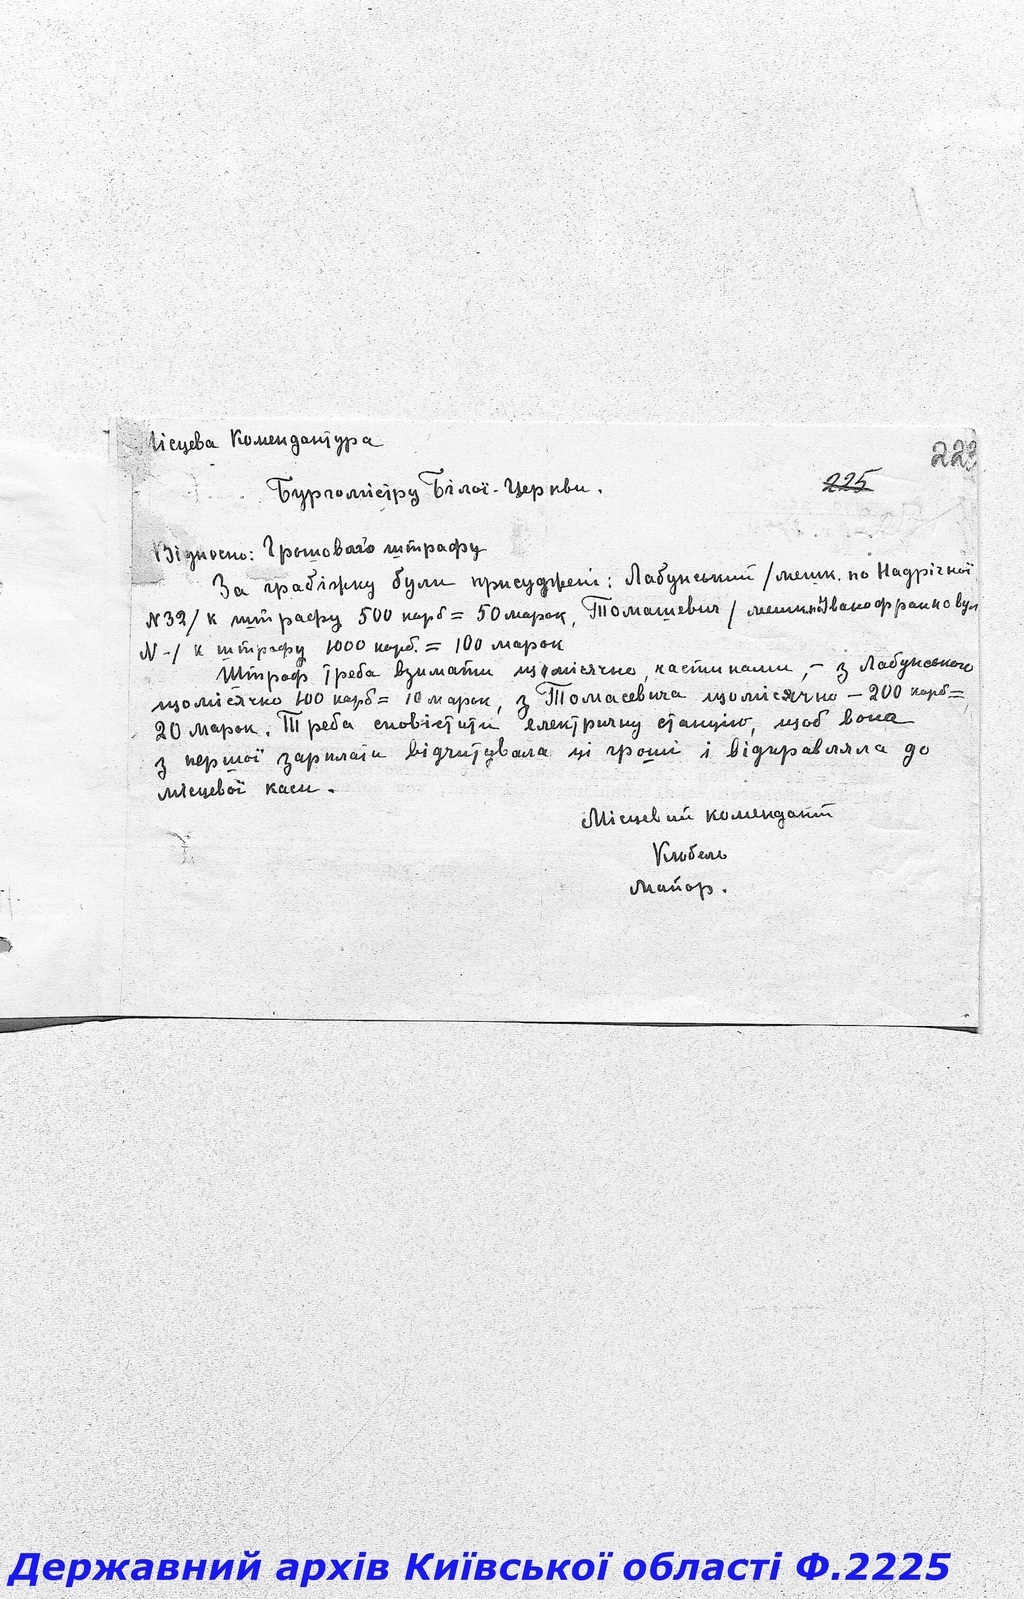 Місцева Комендатура
223
Бургомістру Білої-Церкви.
225
Відносно: Грошового штрафу
За грабіжку були присуджені: Лабунський /мешк. по Надрічної
N 32/ к штрафу 500 карб = 50 марок, Томашевич / мешк. Іванофранко вул
N -/ к штрафу 1000 карб. = 100 марок
Штраф треба взимати щомісячно, частинами, - з Лабунського
щомісячно 100 карб = 10 марок, з Томасевича щомісячно - 200 карб =
20 марок. Треба сповістити електричну станцію, щоб вона
з першої зарплати відчитувала ці гроші і відправляла до
місцевої каси.
Місцевий комендант
Клюбель
Майор.
Державний архів Київської області Ф.2225